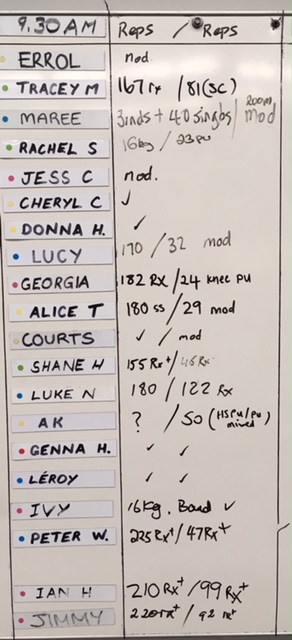 9.30AM Reps / Reps
ERROL mod.
TRACEY M 167 rx / 81(SC)
MAREE 3rnds + 40 singles / 200m mod
RACHEL S 16kg / 23 PU
JESS C mod.
CHERYL C ✓
DONNA H. ✓
LUCY 170 / 32 mod
GEORGIA 182 RX / 24 knee PU
ALICE T 180 ss / 29 mod
COURTS ✓ / mod
SHANE H 155 Rx+ / 45 Rx
LUKE N 180 / 122 Rx
AK ? / 50 (HSPU/PU mixed)
GENNA H. ✓ ✓
LÉROY ✓ ✓
IVY 16kg. Band ✓
PETER W. 225 Rx+ / 47 Rx+
IAN H 210 Rx+ / 99 Rx+
JIMMY / 92 rx+